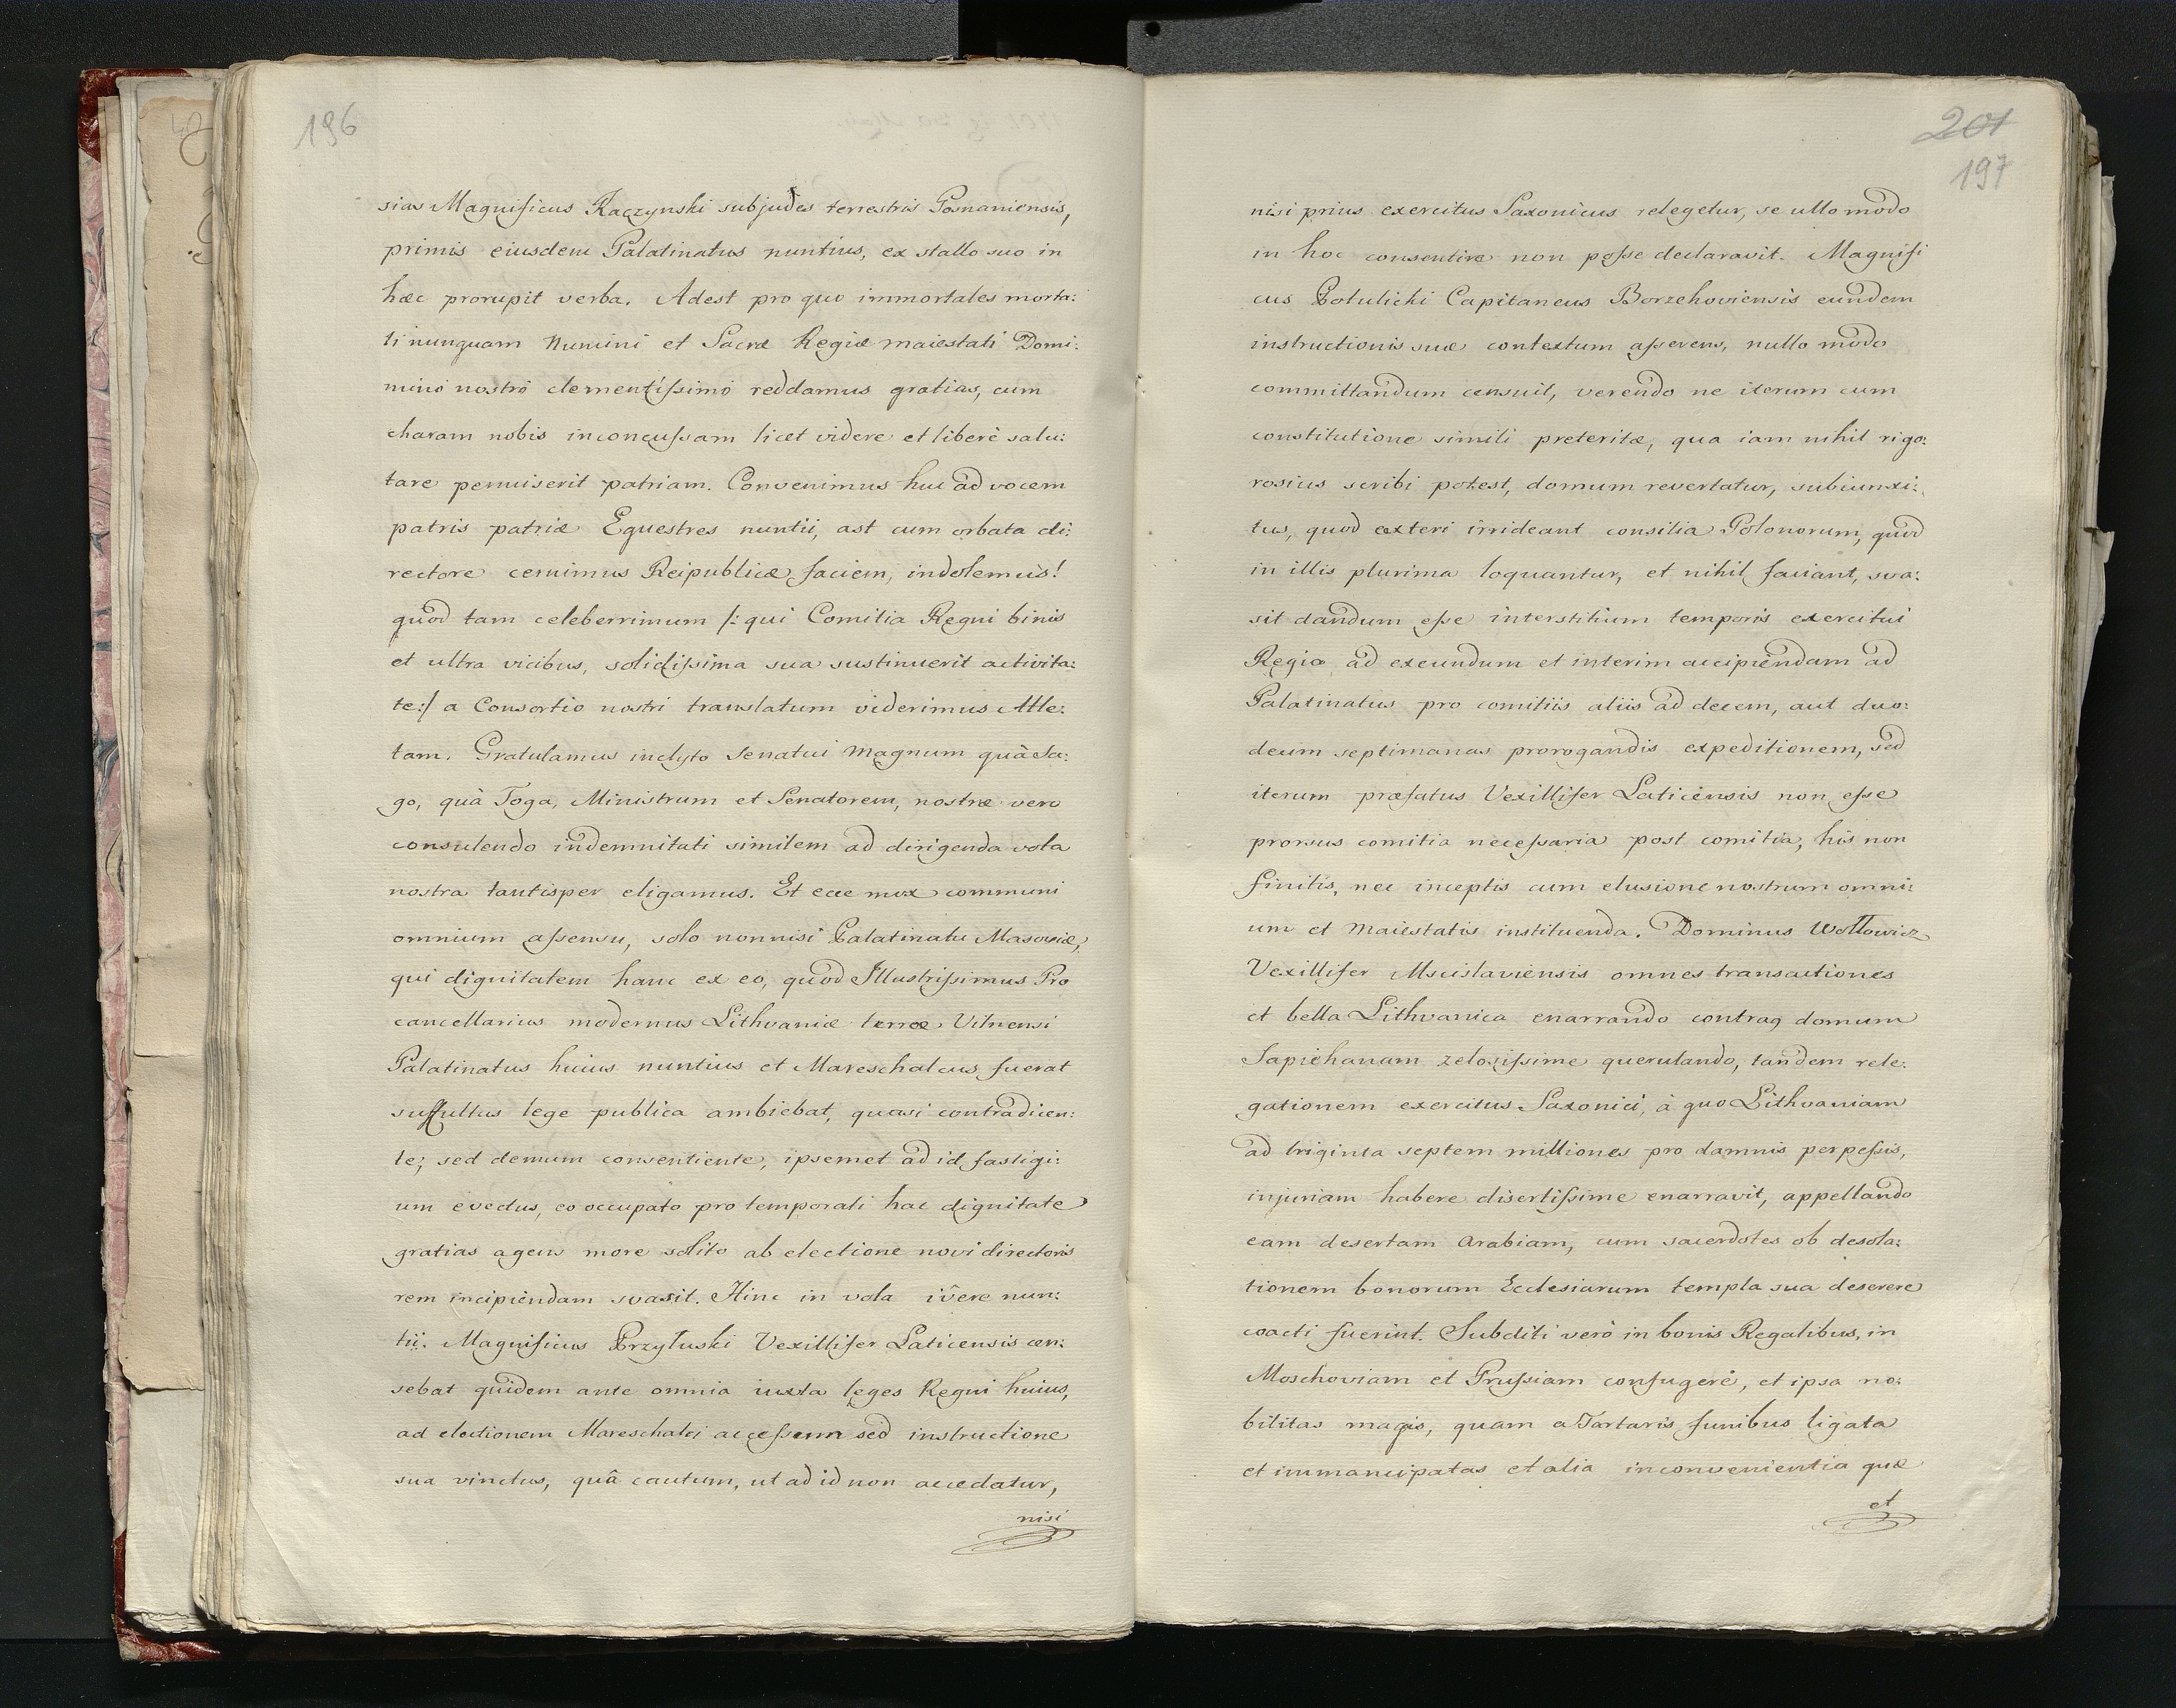 196
sias Magnificus Raczynski subjudes terrestris Posnaniensis,
primis eiusdem Palatinatus nuntius, ex stallo suo in
hæc prorupit verba. Adest pro quo immortales morta:
li nunquam Numini et Sacræ Regiæ maiestati Domi:
nino nostro clementissimo reddamus gratias, cum
charam nobis inconcussam licet videre et liberè salu:
tare permiserit patriam. Convenimus huc ad vocem
patris patriæ Equestres nuntii, ast cum orbata di:
rectore cernimus Reipublicæ faciem, indolemus!
quod tam celeberrimum /: qui Comitia Regni binis
et ultra vicibus, solidissima sua sustinuerit activita:
te:/ a Consortio nostri translatum viderimus Atle:
tam. Gratulamus inclyto Senatui magnum quà Sa:
go, quà Toga, Ministrum et Senatorem, nostræ vero
consulendo indemnitati similem ad dirigenda vota
nostra tantisper eligamus. Et ecce mox communi
omnium assensu, solo nonnisi Palatinatu Masoviæ,
qui dignitatem hanc ex eo, quod Illustrissimus Pro
cancellarius modernus Lithvaniæ terræ Vilnensi
Palatinatus huius nuntius et Mareschalcus fuerat
suffultus lege publica ambiebat, quasi contradicen:
te; sed demum consentiente, ipsemet ad id fastigi:
um evectus, eo occupato pro temporali hac dignitate
gratias agens more solito ab electione novi directoris
rem incipiendam svasit. Hinc in vota ivêre nun:
tii. Magnificus Przyłuski Vexillifer Laticensis cen:
sebat quidem ante omnia iuxta leges Regni huius,
ad electionem Mareschalci accessum sed instructione
sua vinctus, quâ cautum, ut ad id non accedatur,
nisi
201
197
nisi prius exercitus Saxonicus relegetur, se ullo modo
in hoc consentire non posse declaravit. Magnifi
cus Potulicki Capitaneus Borzehoviensis eundem
instructionis suæ contextum asserens, nullo modo
committandum censuit, verendo ne iterum cum
constitutione simili preteritæ, qua iam nihil rigo:
rosius scribi potest, domum revertatur, subiunxi:
tus, quod exteri irrideant consilia Polonorum, quod
in illis plurima loquantur, et nihil faciant, sva:
sit dandum esse interstitium temporis exercitui
Regio ad exeundum et interim accipiendam ad
Palatinatus pro comitiis aliis ad decem, aut duo:
decim septimanas prorogandis expeditionem, sed
iterum præfatus Vexillifer Laticensis non esse
prorsus comitia necessaria post comitia, his non
finitis, nec inceptis cum elusione nostrum omni:
um et maiestatis instituenda. Dominus Wołłowicz
Vexillifer Mscislaviensis omnes transactiones
et bella Lithvanica enarrando contraq domum
Sapiehanam zelosissime querulando, tandem rele:
gationem exercitus Saxonici, à quo Lithvaniam
ad triginta septem milliones pro damnis perpessis,
injuriam habere disertissime enarravit, appellando
eam desertam Arabiam, cum sacerdotes ob desola:
tionem bonorum Ecclesiarum templa sua deserere
coacti fuerint. Subditi verò in bonis Regalibus, in
Moschoviam et Prussiam confugerè, et ipsa no:
bilitas magis, quam a Tartaris funibus ligata
et immancipatas et alia inconvenientia quæ
et